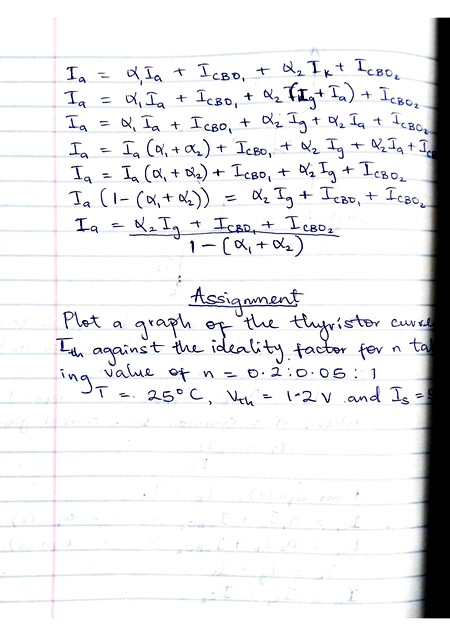 Ia = α₁Ia + ICBO₁ + α₂ Ik + ICBO₂
Ia = α₁ Ia + ICBO₁ + α₂ (Ig + Ia) + ICBO₂
Ia = α₁ Ia + ICBO₁ + α₂ Ig + α₂ Ia + ICBO₂
Ia = Ia (α₁ + α₂) + ICBO₁ + α₂ Ig + α₂Ia + IC
Ia = Ia (α₁ + α₂) + ICBO₁ + α₂Ig + ICBO₂
Ia (1 - (α₁ + α₂)) = α₂ Ig + ICBO₁ + ICBO₂
Ia = α₂ Ig + ICBO₁ + ICBO₂
1 - (α₁ + α₂)
Assignment
Plot a graph of the thyristor curre
Ith against the ideality factor for n tak
ing value of n = 0.2:0.05:1
T = 25°C, Vth = 1.2 V and Is =